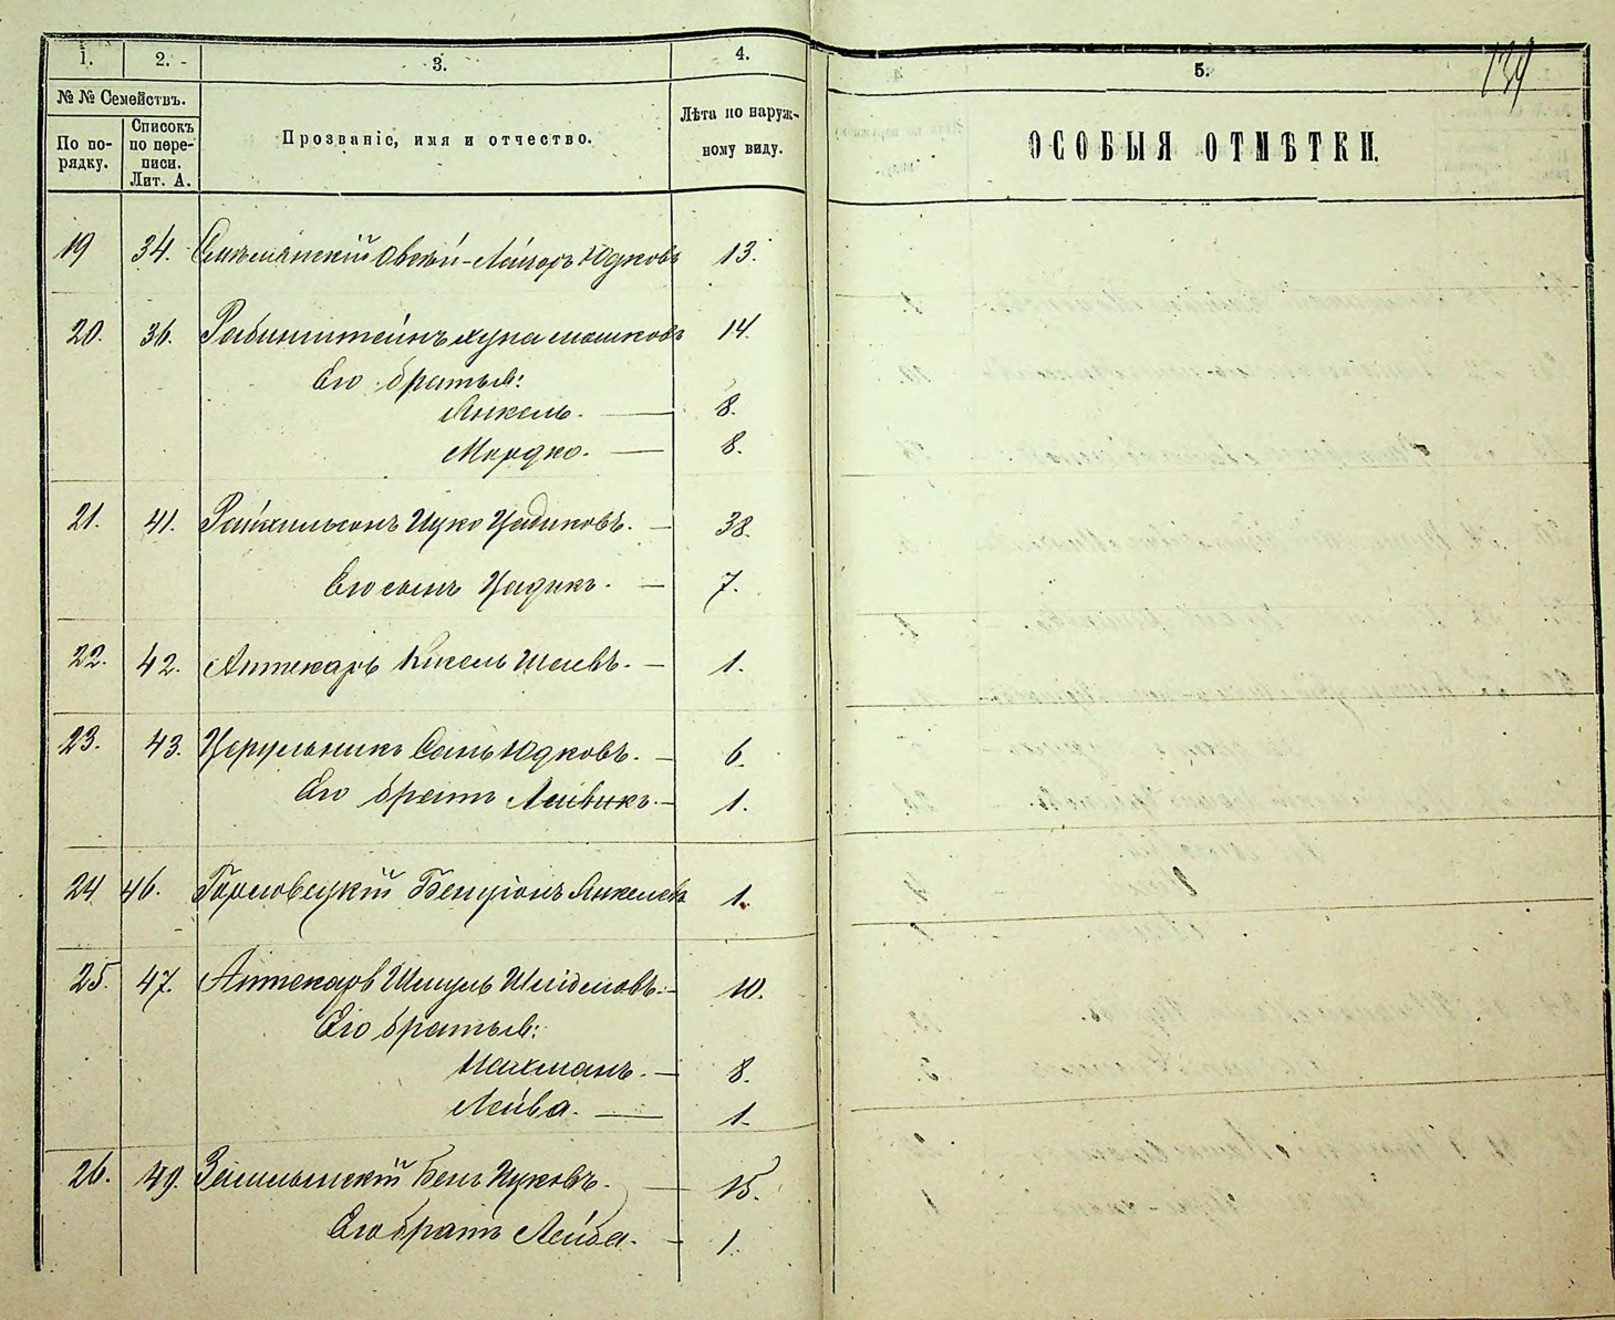 139
1. 2. 3. 4. 5.
№ № Семействъ.
По по-
рядку.
Списокъ
по пере-
писи.
Лит. А.
Прозваніе, имя и отчество.
Лѣта по наруж-
ному виду.
ОСОБЫЯ ОТМѢТКИ.
19 34. Овсѣй-Лейзоръ Юдковъ 13.
20. 36. Рабинштейнъ Хуна Мошковъ 14.
Его братья:
Янкель. — 8.
Мордко. — 8.
21. 41. Райхильсонъ Ицко Цадиковъ. — 38.
Его сынъ Цадикъ. — 7.
22. 42. Аптекарь Кисель Шаевъ. — 1.
23. 43. Цирульникъ Юдковъ. — 6.
Его братъ Лейвикъ. — 1.
24 46. Бенціонъ Янкелевъ 1.
25. 47. Аптекарь Шмуль 10.
Его братья:
Нахманъ. — 8.
Лейва. — 1.
26. 49. Бенъ Ицковъ. — 15.
Его братъ Лейба. — 1.